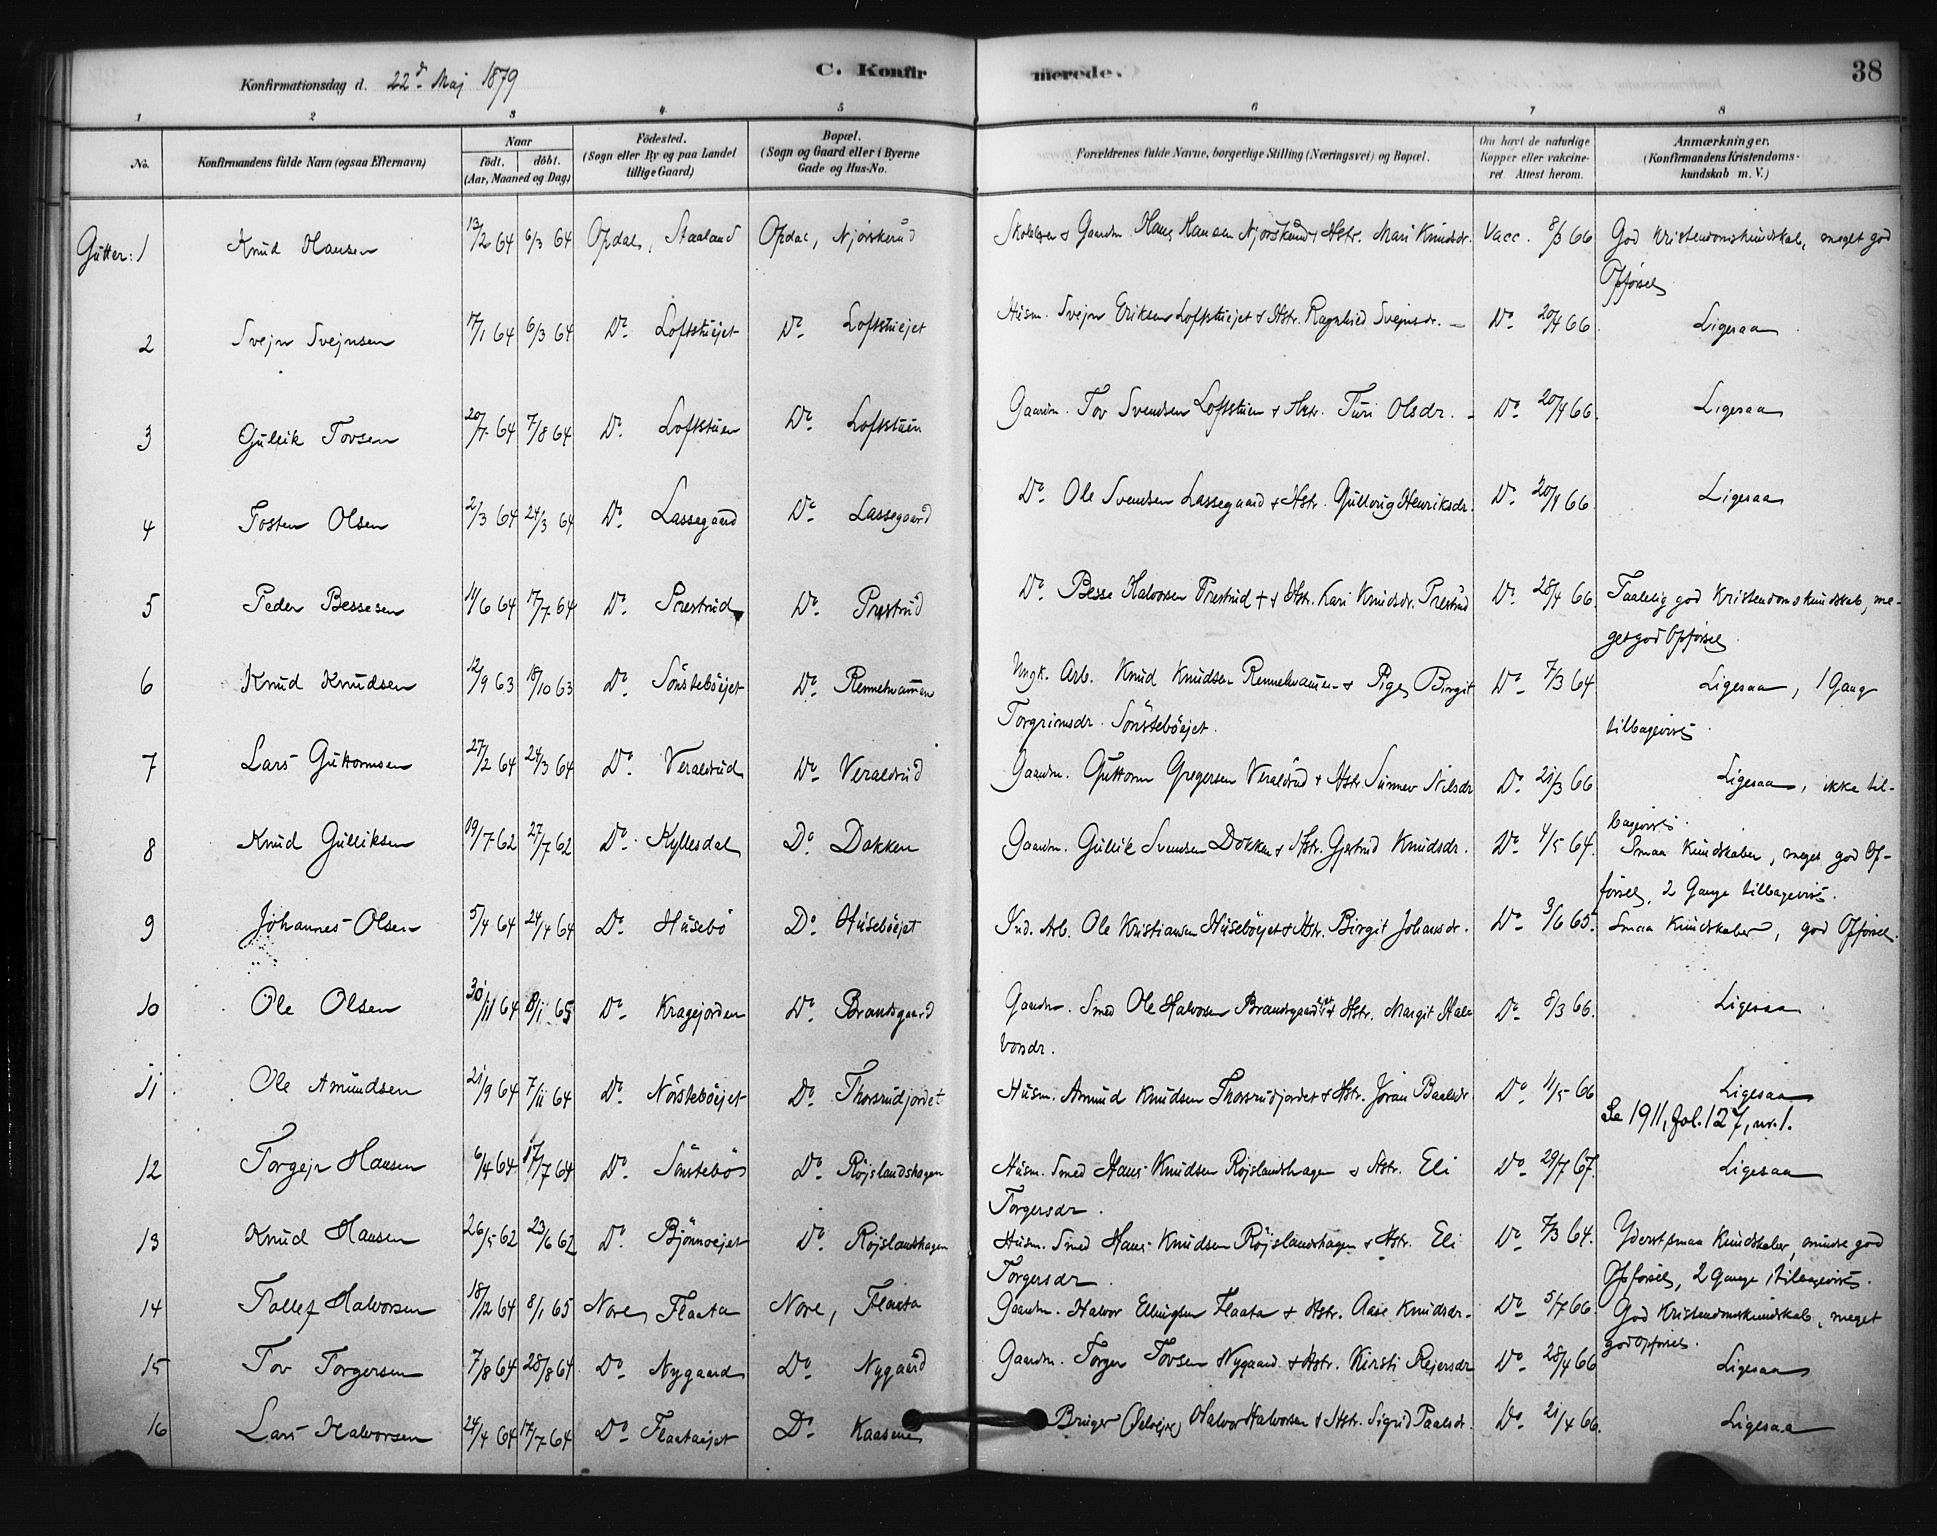 Konfirmationsdag d. 22d Maj 1879 C. Konfir merede. 38
1 2 3 4 5 6 7 8
No. Konfirmandens fulde Navn (ogsaa Efternavn) Naar født. døbt. (Aar, Maaned og Dag) Fødested. (Sogn eller By og paa Landet tillige Gaard) Bopæl. (Sogn og Gaard eller i Byerne Gade og Hus-No. Forældrenes fulde Navne, borgerlige Stilling (Næringsvei) og Bopæl. Om havt de naturlige Kopper eller vakcineret Attest herom. Anmærkninger. (Konfirmandens Kristendomskundskab m. V.)
Gutter: 1 Knud Hansen 13/2 64 6/3 64 Opdal, Staaland Opdal, Njorskerud Gaardm. Hans Hansen Njorskerud & Hstr. Mari Knudsdr. Vacc. 8/3 66 God Kristendomskundskab, meget god
Opførsel
2 Svejn Svejnsen 17/1 64 6/3 64 Do. Loftstuejet Do. Loftstuejet Husm. Svejn Eriksen Loftstuejet & Hstr. Ragnhild Svejnsdr. Do. 20/4 66 Ligesaa
3 Gullik Tovsen 20/7 64 7/8 64 Do. Loftstuen Do. Loftstuen Gaardm. Tov Svendsen Loftstuen & Hstr. Turi Olsdr. Do. 20/4 66. Ligesaa
4 Tosten Olsen 2/3 64 24/3 64 Do. Lassegaard Do. Lassegaard Do. Ole Svendsen Lassegaard & Hstr. Gullaug Henriksdr. Do. 20/4 66. Ligesaa
5 Peder Bessesen 11/6 64 17/7 64 Do. Prestrud Do. Prestrud Do. Besse Halvorsen Prestrud † & Hstr. Kari Knudsdr. Prestrud Do. 28/4 66. Taalelig god Kristendomskundskab, me-
get god Opførsel.
6 Knud Knudsen 12/9 63 18/10 63 Do. Sönstebøejet Do. Ungk. Arb. Knud Knudsen & Pige Birgit Do. 7/3 64 Ligesaa, 1 Gang
Torgrimsdr. Sönstebøejet. tilbagevist.
7 Lars Guttormsen 27/2 64 24/3 64 Do. Veraldrud Do. Veraldrud Gaardm. Guttorm Gregersen Veraldrud & Hstr. Sunnev Nilsdr Do. 21/3 66 Ligesaa, ikke til-
bagevist.
8 Knud Gulliksen 19/7 62 27/7 62 Do. Kyllesdal Do. Dokken Gaardm. Gullik Svendsen Dokken & Hstr. Gjertrud Knudsdr. Do. 4/5 64. Smaa Kundskaber, meget god Op-
førsel, 2 Gange tilbagevist.
9 Johannes Olsen 5/4 64 24/4 64 Do. Husebö Do. Husebøejet Ind. Arb. Ole Kristiansen Husebøejet & Hstr. Birgit Johansdr. Do. 3/6 65. Smaa Kundskaber, god Opførsel.
10 Ole Olsen 30/11 64 8/1 65 Do. Kragejorden Do. Brandsgaard Gaardm. Smed Ole Halvorsen & Hstr. Margit Hal-
vorsdr. Do. 8/3 66. Ligesaa
11 Ole Amundsen 21/9 64 7/11 64 Do. Nörstebøejet Do. Thorsrudjordet Husm. Amund Knudsen Thorsrudjordet & Hstr. Jöran Baalsdr Do. 11/5 66 Ligesaa
Se 1911, fol. 127, nr. 1.
12 Torgejr Hansen 6/4 64 17/7 64 Do. Sönstebö Do. Røjslandshagen Husm. Smed Hans Knudsen Røjslandshagen & Hstr. Eli Do. 29/7 67. Ligesaa
Torgersdr.
13 Knud Hansen 26/5 62 23/6 62 Do. Bjönnoejet Do. Røjslandshagen Husm. Smed Hans Knudsen Røjslandshagen & Hstr. Eli Do. 7/3 64. Yderst smaa Kundskaber, mindre god
Torgersdr. Opførsel, 2 Gange tilbagevist.
14 Tollef Halvorsen 18/12 64 8/1 65 Nore, Flaata Nore, Flaata Gaardm. Halvor Ellingsen Flaata & Hstr. Aase Knudsdr. Do. 5/7 66. God Kristendomskundskab, meget
god Opførsel.
15 Tov Torgersen 7/8 64 28/8 64 Do. Nygaard Do. Nygaard Gaardm. Torger Tovsen Nygaard & Hstr. Kirsti Rejersdr Do. 28/4 66 Ligesaa
16 Lars Halvorsen 24/4 64 17/7 64 Do. Flaataejet Do. Kaasene Bruger Halvor Halvorsen & Hstr. Sigrid Paalsdr. Do. 21/4 66. Ligesaa